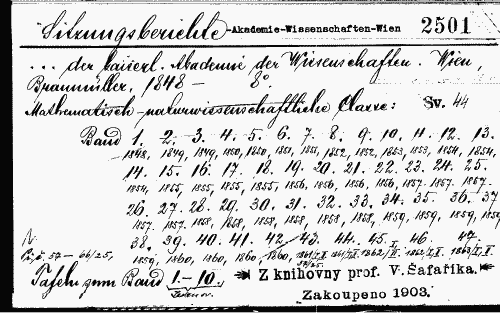 Sitzungsberichte -Akademie-Wissenschaften-Wien 2501
... der kaiserl. Akademie der Wissenschaften. Wien,
Braumüller, 1848 - 8°
Mathematisch-naturwissenschaftliche Classe: Sv. 44
Band 1. 2. 3. 4. 5. 6. 7. 8. 9. 10. 11. 12. 13.
1848, 1849, 1849, 1850, 1850, 1851, 1851, 1852, 1852, 1853, 1853, 1854, 1854.
14. 15. 16. 17. 18. 19. 20. 21. 22. 23. 24. 25.
1854, 1855, 1855, 1855, 1855, 1856, 1856, 1856, 1856, 1857. 1857. 1857.
26. 27. 28. 29. 30. 31. 32. 33. 34. 35. 36. 37
1857. 1857. 1858, 1858, 1858, 1858, 1858, 1858, 1859, 1859, 1859, 1859
38. 39. 40. 41. 42. 43. 44. 45. 46. 47.
1859, 1860, 1860, 1860, 1860,
Tafeln zum Band 1.-10. Z knihovny prof. V. Šafaříka.
Zakoupeno 1903.